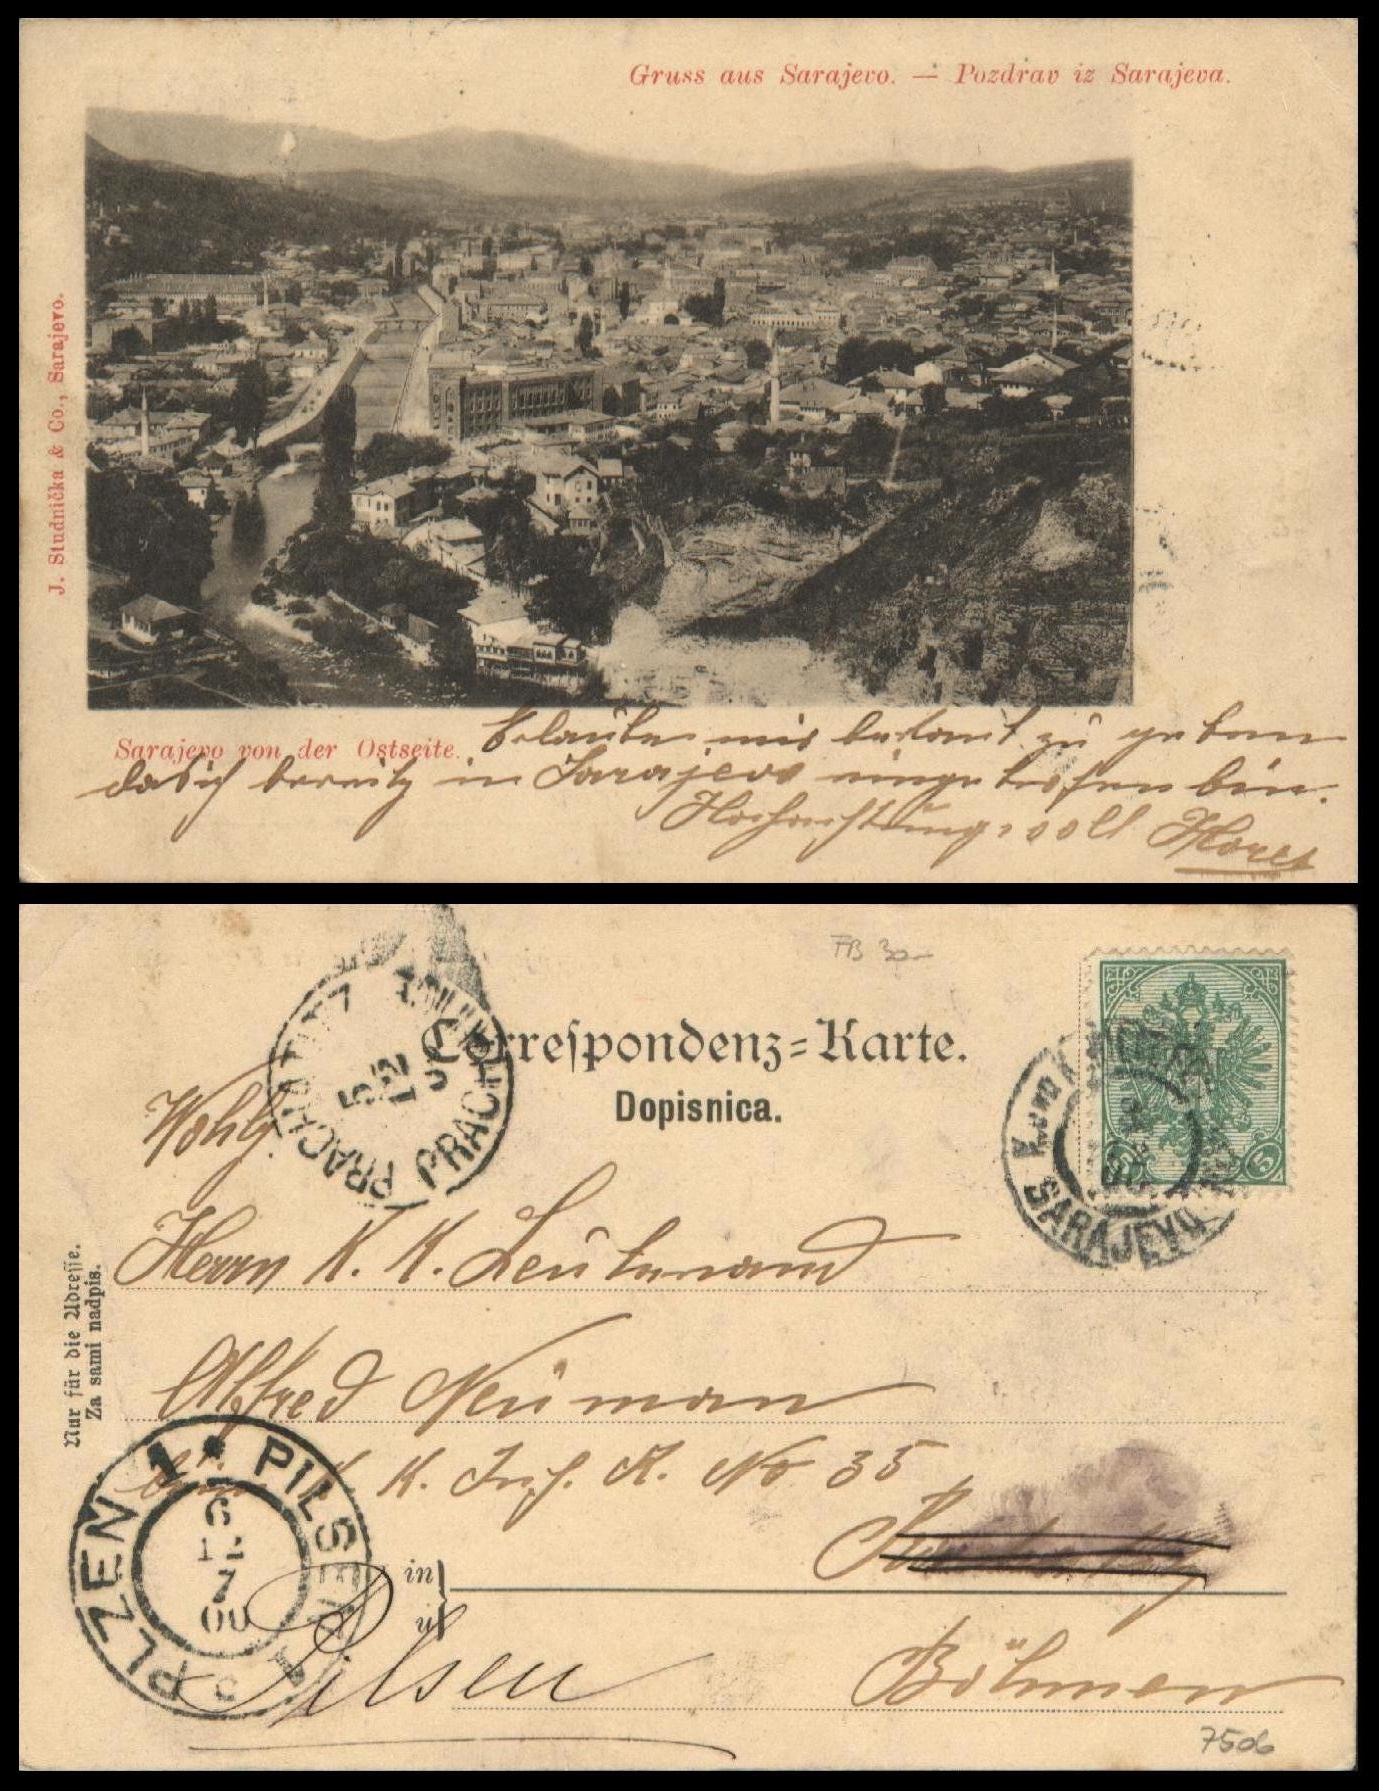 Gruss aus Sarajevo. — Pozdrav iz Sarajeva.
J. Studnička & Co., Sarajevo.
Sarajevo von der Ostseite.
Erlaube mir bekant zu geben
das ich bereitz in Sarajevo eingetrofen bin.
Hochachtungsvoll
FB 30-
Correſpondenz=Karte.
Dopisnica.
PRACHATITZ PRACHATICE
5/12
SARAJEVO
5
Wohlg.
Herrn K. K. Leutenand
Nur für die Adreſſe.
Za sami nadpis.
Alfred Neuman
K. Inf. R. No 35
PLZEN 1 * PILSEN 1
6
12
7
00
in
u
Pilsen
Böhmen
7506